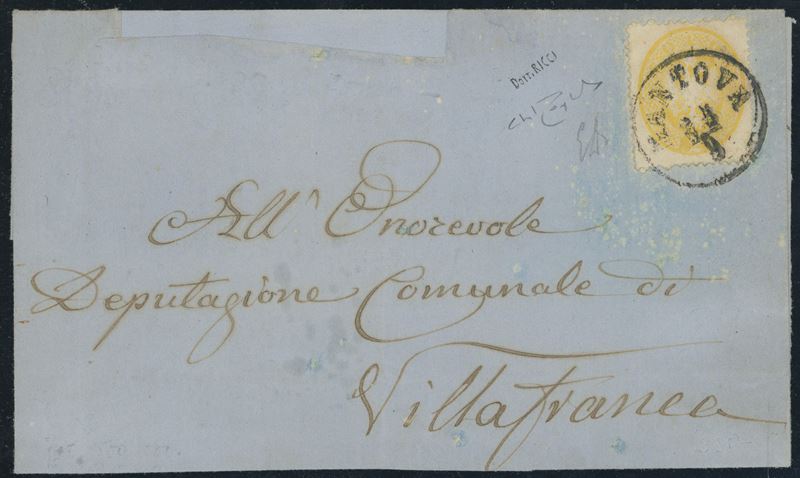 MANTOVA
Dott. RICCI
All' Onorevole
Deputazione Comunale di
Villafranca